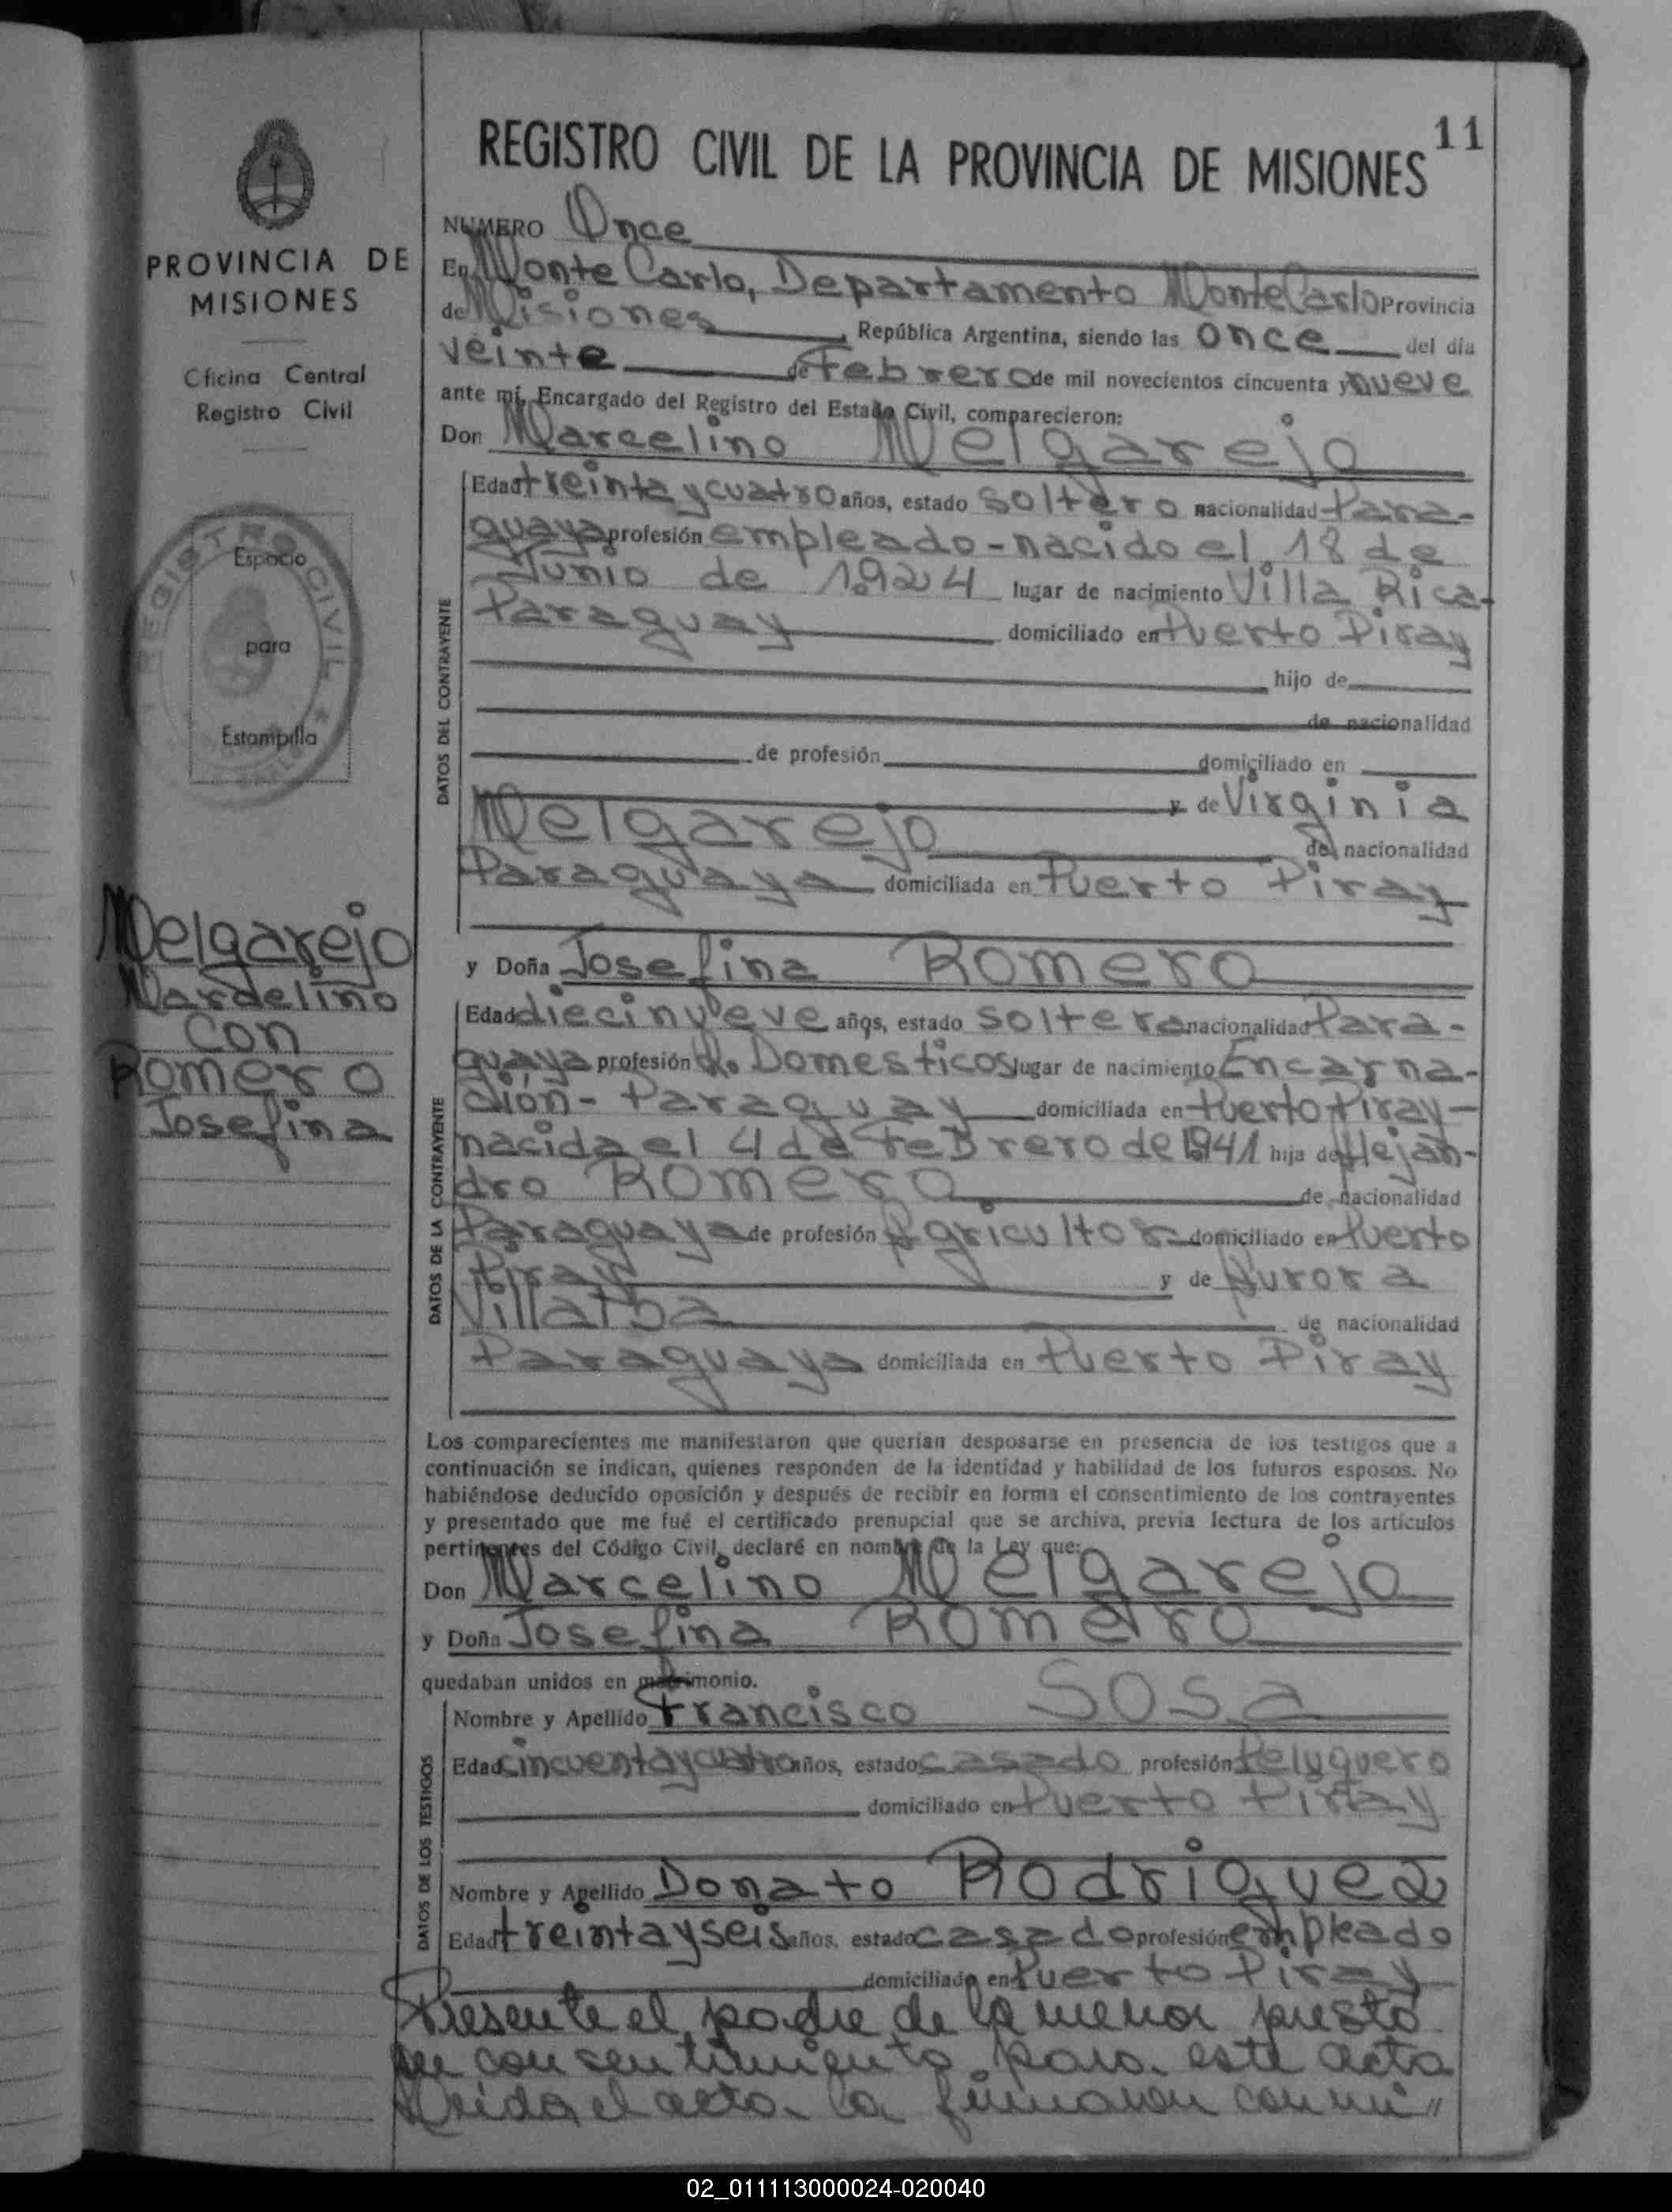 PROVINCIA DE
MISIONES
Oficina Central
Registro Civil
REGISTRO CIVIL
Espacio
para
Estampilla
Melgarejo
Mardelino
con
Romero
Josefina
11
REGISTRO CIVIL DE LA PROVINCIA DE MISIONES
NUMERO Once
En Monte Carlo, Departamento Monte Carlo Provincia
de Misiones, República Argentina, siendo las once del día
veinte de Febrero de mil novecientos cincuenta y nueve
ante mí, Encargado del Registro del Estado Civil, comparecieron:
Don Marcelino Melgarejo
DATOS DEL CONTRAYENTE
Edad treinta y cuatro años, estado soltero nacionalidad Para-
guaya profesión empleado - nacido el 18 de
Junio de 1.924 lugar de nacimiento Villa Rica-
Paraguay domiciliado en Puerto Piray
hijo de
de nacionalidad
de profesión domiciliado en
y de Virginia
Melgarejo de nacionalidad
Paraguaya domiciliada en Puerto Piray
y Doña Josefina Romero
DATOS DE LA CONTRAYENTE
Edad diecinueve años, estado soltera nacionalidad Para-
guaya profesión Q. Domesticos lugar de nacimiento Encarna-
ción - Paraguay domiciliada en Puerto Piray -
nacida el 4 de Febrero de 1941 hija de Alejan-
dro Romero de nacionalidad
Paraguaya de profesión Agricultor domiciliado en Puerto
Piray y de Aurora
Villalba de nacionalidad
Paraguaya domiciliada en Puerto Piray
Los comparecientes me manifestaron que querían desposarse en presencia de los testigos que a
continuación se indican, quienes responden de la identidad y habilidad de los futuros esposos. No
habiéndose deducido oposición y después de recibir en forma el consentimiento de los contrayentes
y presentado que me fué el certificado prenupcial que se archiva, previa lectura de los artículos
pertinentes del Código Civil, declaré en nombre de la Ley que:
Don Marcelino Melgarejo
y Doña Josefina Romero
quedaban unidos en matrimonio.
DATOS DE LOS TESTIGOS
Nombre y Apellido Francisco Sosa
Edad cincuenta y cuatro años, estado casado profesión Peluquero
domiciliado en Puerto Piray
Nombre y Apellido Donato Rodriguez
Edad treinta y seis años, estado casado profesión empleado
domiciliado en Puerto Piray
Presente el padre de la menor prestó
su consentimiento para este acto
Leida el acta la firmaron con mi"
02_011113000024-020040